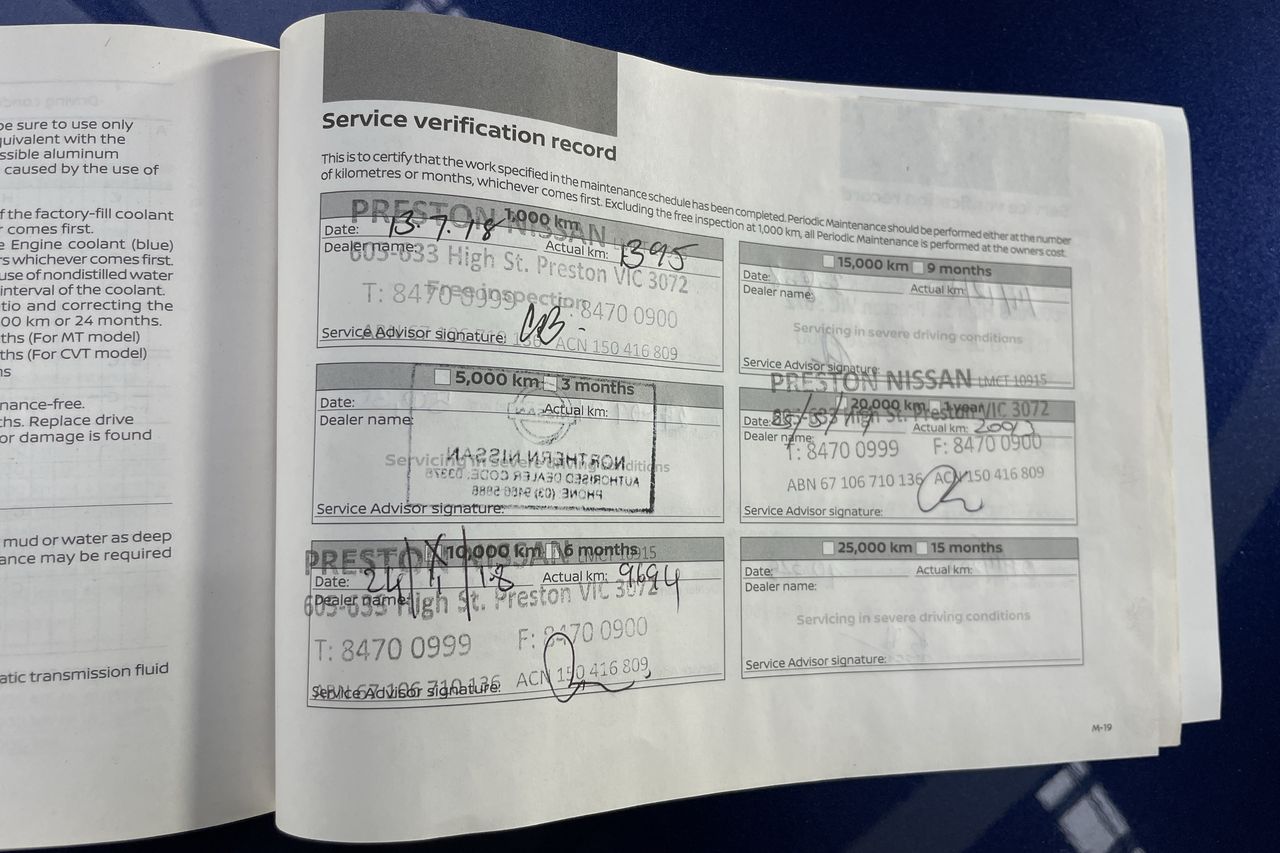 be sure to use only
quivalent with the
ssible aluminum
caused by the use of
f the factory-fill coolant
r comes first.
e Engine coolant (blue)
rs whichever comes first.
use of nondistilled water
interval of the coolant.
tio and correcting the
00 km or 24 months.
ths (For MT model)
ths (For CVT model)
ns
nance-free.
ths. Replace drive
or damage is found
mud or water as deep
ance may be required
atic transmission fluid
Service verification record
This is to certify that the work specified in the maintenance schedule has been completed. Periodic Maintenance should be performed either at the number
of kilometres or months, whichever comes first. Excluding the free inspection at 1,000 km, all Periodic Maintenance is performed at the owners cost.
1,000 km
PRESTON NISSAN
Date: 13.7.18
Dealer name: Actual km: 1395
603-633 High St. Preston VIC 3072
Free inspection
T: 8470 0999 F: 8470 0900
Service Advisor signature:
ACN 150 416 809
5,000 km 3 months
Date: Actual km:
Dealer name:
Servicing in severe driving conditions
NORTHERN NISSAN
AUTHORISED DEALER CODE: 03378
PHONE (03) 9466 8888
Service Advisor signature:
10,000 km 6 months
PRESTON NISSAN LMCT 10915
Date: 24 18 Actual km: 9694
Dealer name:
603-633 High St. Preston VIC 3072
T: 8470 0999 F: 8470 0900
ABN 67 106 710 136 ACN 150 416 809
Service Advisor signature:
15,000 km 9 months
Date: Actual km:
Dealer name:
Servicing in severe driving conditions
Service Advisor signature:
PRESTON NISSAN LMCT 10915
20,000 km 1 year
603-633 High St. Preston VIC 3072
Date: Actual km:
Dealer name:
T: 8470 0999 F: 8470 0900
ABN 67 106 710 136 ACN 150 416 809
Service Advisor signature:
25,000 km 15 months
Date: Actual km:
Dealer name:
Servicing in severe driving conditions
Service Advisor signature:
M-19